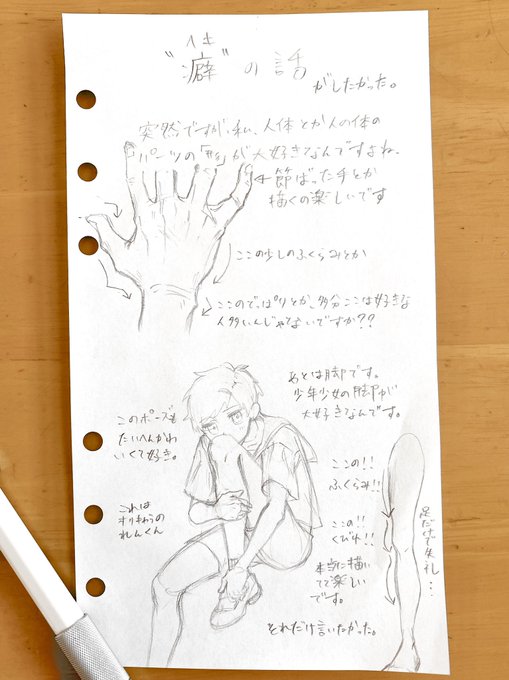 ヘキ
"癖"の話
がしたかった。
突然ですが、私、人体とか人の体の
パーツの「形」が大好きなんですよね、
←節ばった手とか
描くの楽しいです
ここの少しのふくらみとか
ここのでっぱりとか、多分ここは好きな
人多いんじゃないですか??
あとは脚です。
少年少女の脚が
大好きなんです。
このポーズも
たいへんかわ
いくて好き。
これは
オリキャラの
れんくん
ここの!!
ふくらみ!!
ここの!!
くびれ!!
本当に描い
てて楽しい
です。
足だけで失礼…
それだけ言いたかった。